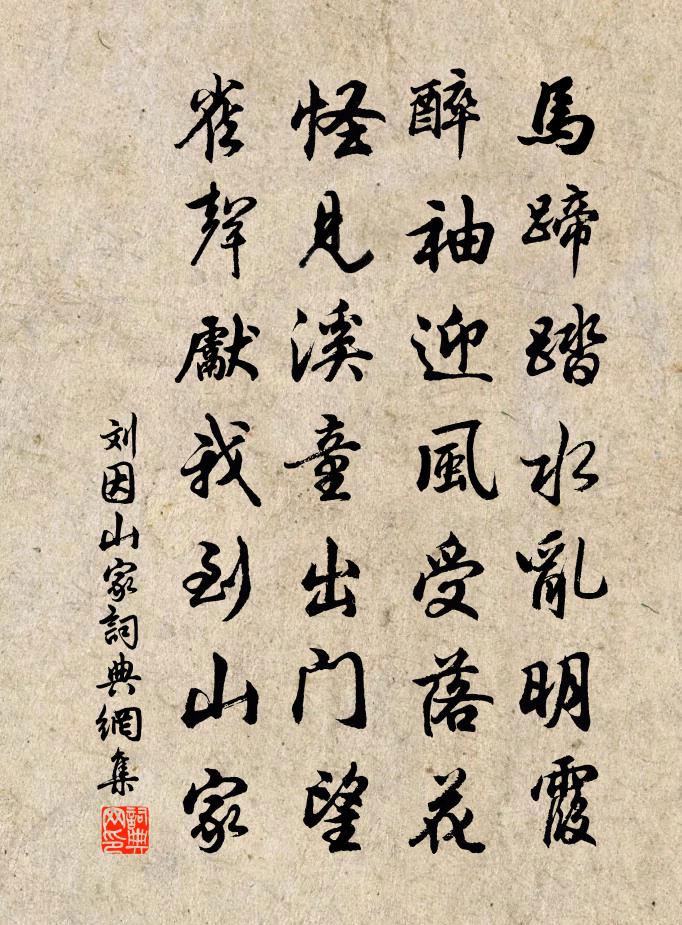 馬蹄踏水亂明霞
醉袖迎風受落花
怪見溪童出门望
雀聲獻我到山家
刘因山家詞典網集
詞典网印